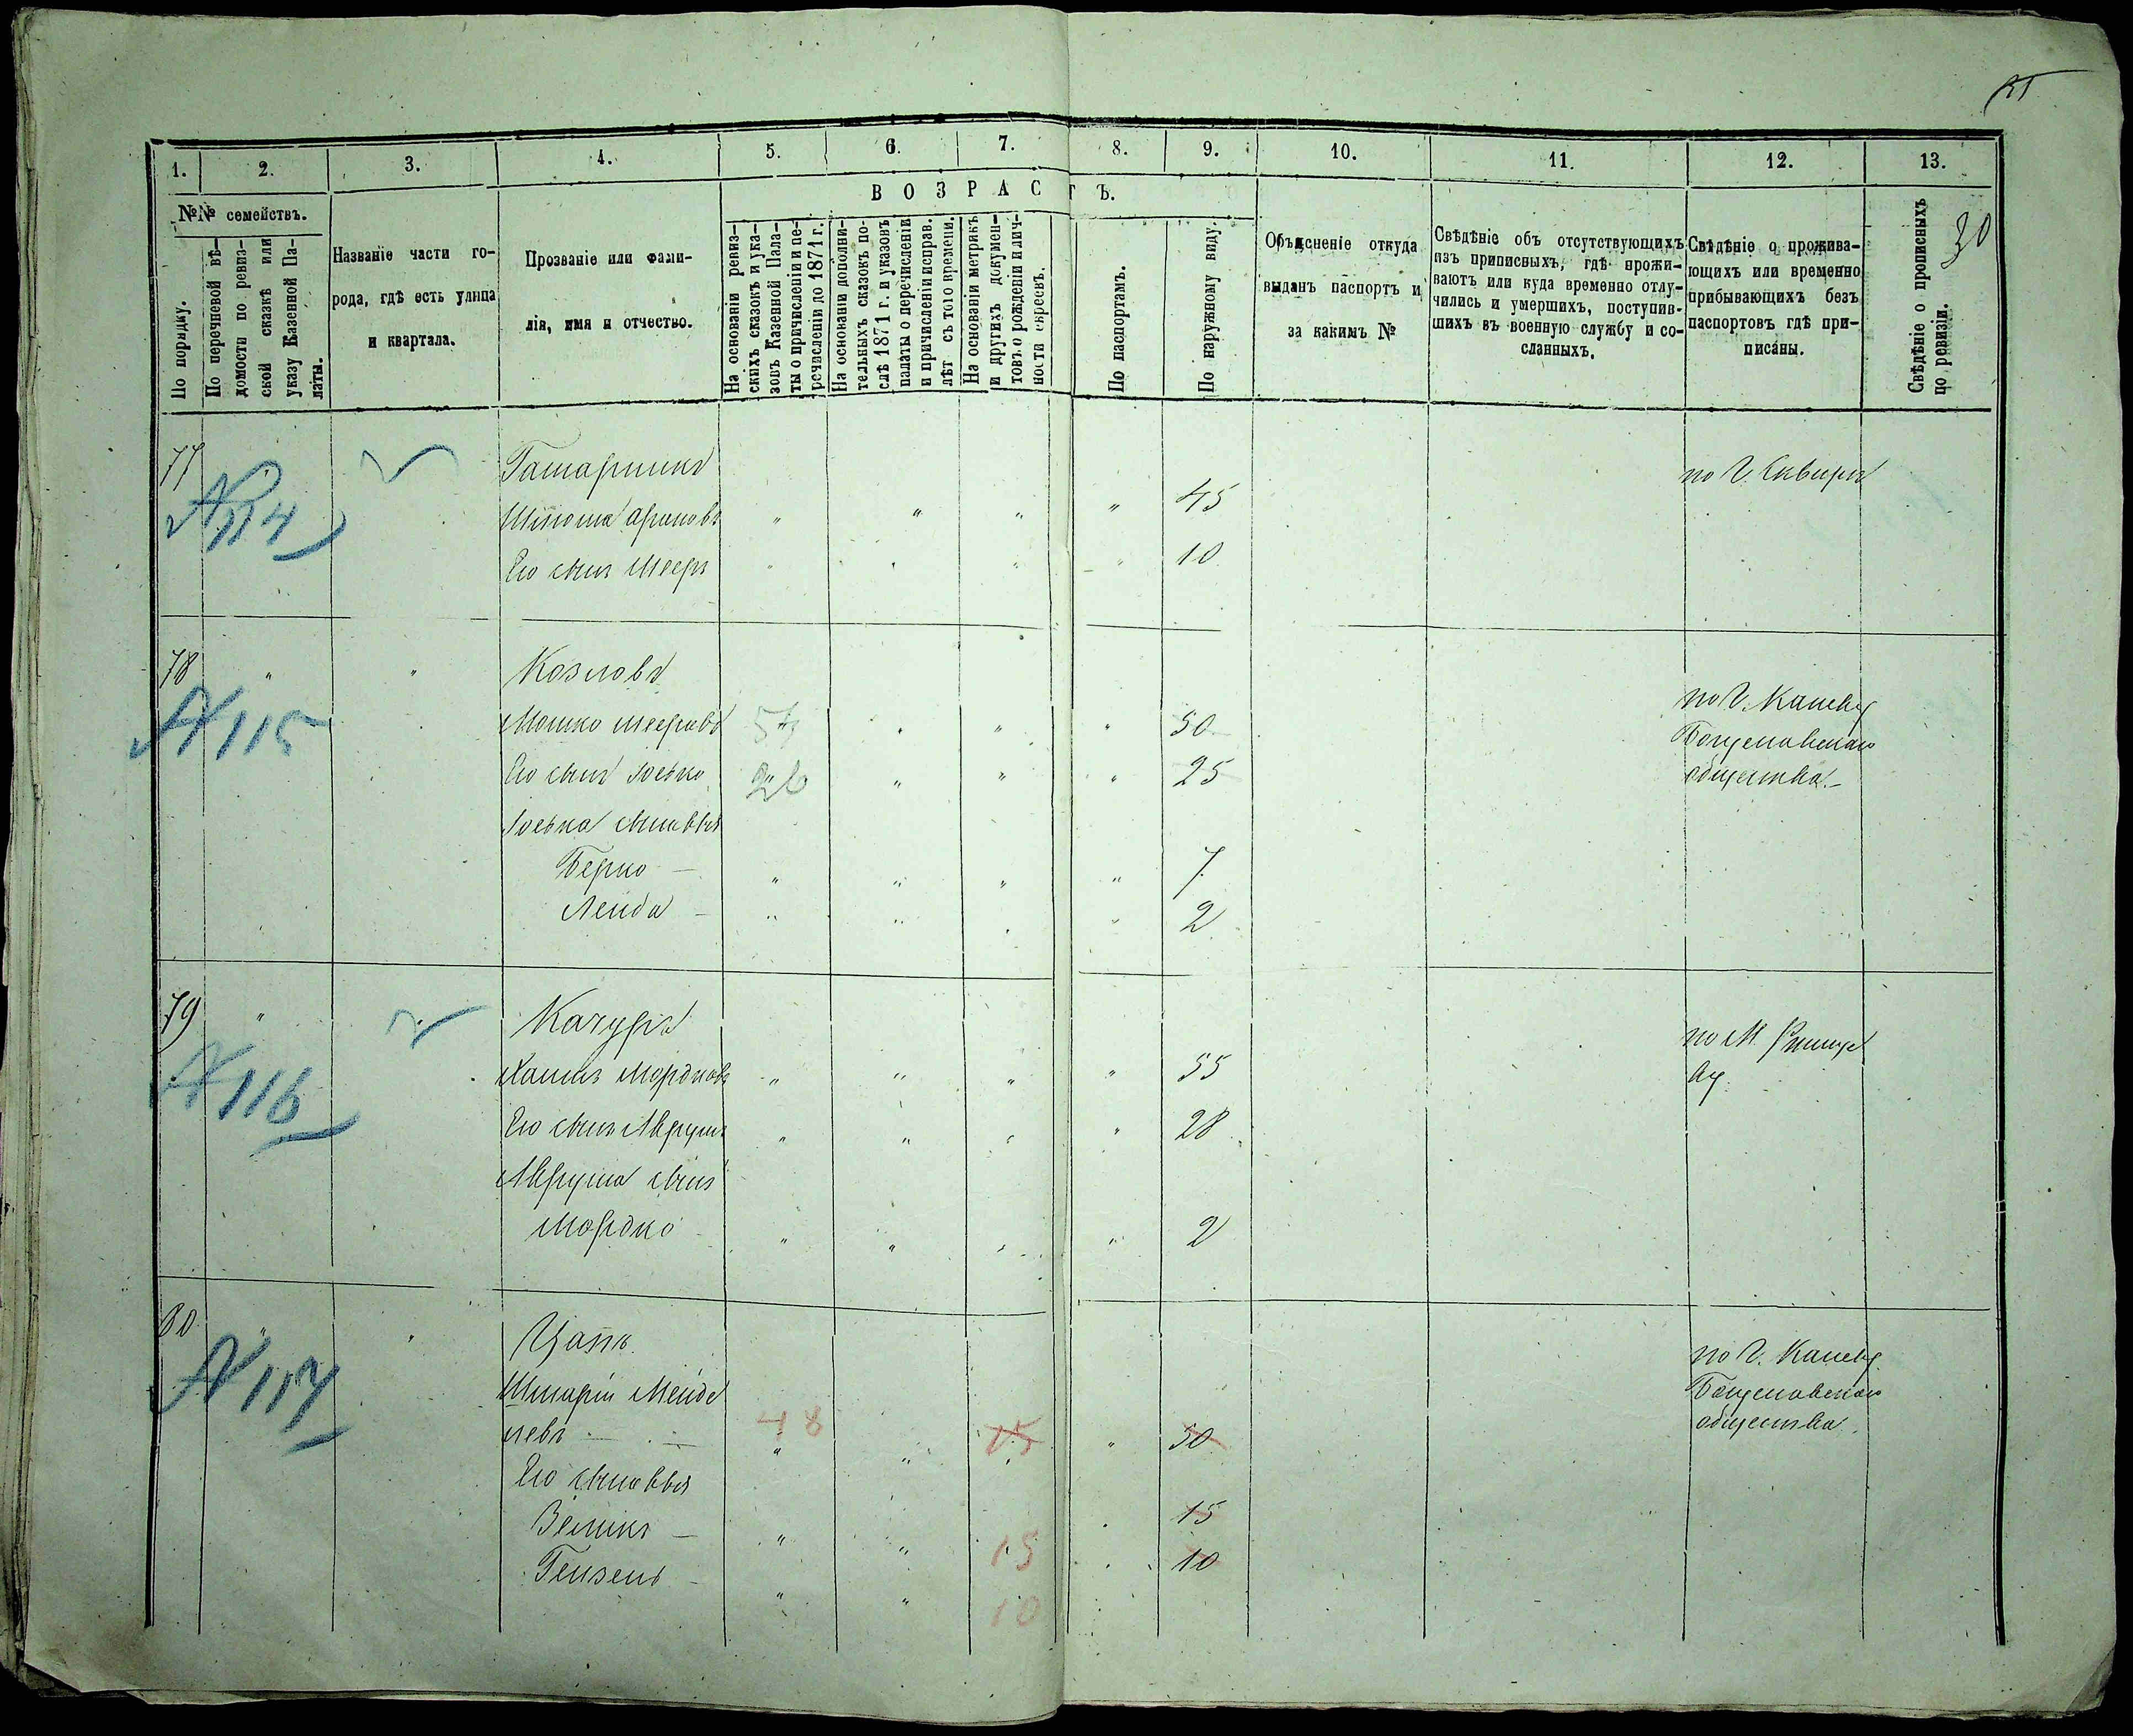 31
30
1. 2. 3. 4. 5. 6. 7. 8. 9. 10. 11. 12. 13.
№№ семействъ.
По порядку.
По перечневой вѣ-
домости по ревиз-
ской сказкѣ или
указу Казенной Па-
латы.
Названіе части го-
рода, гдѣ есть улица
и квартала.
Прозваніе или фами-
лія, имя и отчество.
ВОЗРАСТЪ.
На основаніи ревиз-
скихъ сказокъ и ука-
зовъ Казенной Пала-
ты о причисленіи и пе-
речисленіи до 1871 г.
На основаніи дополни-
тельныхъ сказокъ по-
слѣ 1871 г. и указовъ
палаты о перечисленіи
и причисленіи исправ.
лѣт съ того времени.
На основаніи метрикъ
и другихъ докумен-
товъ о рожденіи и лич-
ности евреевъ.
По паспортамъ.
По наружному виду.
Объясненіе откуда
выданъ паспортъ и
за какимъ №
Свѣдѣніе объ отсутствующихъ
изъ приписныхъ, гдѣ прожи-
ваютъ или куда временно отлу-
чились и умершихъ, поступив-
шихъ въ военную службу и со-
сланныхъ.
Свѣдѣніе о прожива-
ющихъ или временно
прибывающихъ безъ
паспортовъ гдѣ при-
писаны.
Свѣдѣніе о прописныхъ
по ревизіи.
77 по г. Сквирѣ
№ 114
45
Его сынъ Мееръ " " " " 10
78 " " Козловъ по г. Каневу
№ 115 Мошко Мееровъ 54 " " " 50 Богуславскаго
Его сынъ Іосько 26 " " " 25 общества.
Іоська сыновья
Берко — " " " " 7
Лейба — " " " " 2
79 " Качуръ по М.
№ 116 Хаимъ Мордковъ " " " " 55 ву.
Его сынъ Аврумъ " " " " 28
Аврума сынъ
Мордко " " " " 2
80 " " Цапъ. по г. Каневу
№ 117 Шмарій Менде Богуславскаго
левъ — 48 " 15 " 50 общества.
Его сыновья
Зеликъ — " " 15 " 15
" " 10 " 10